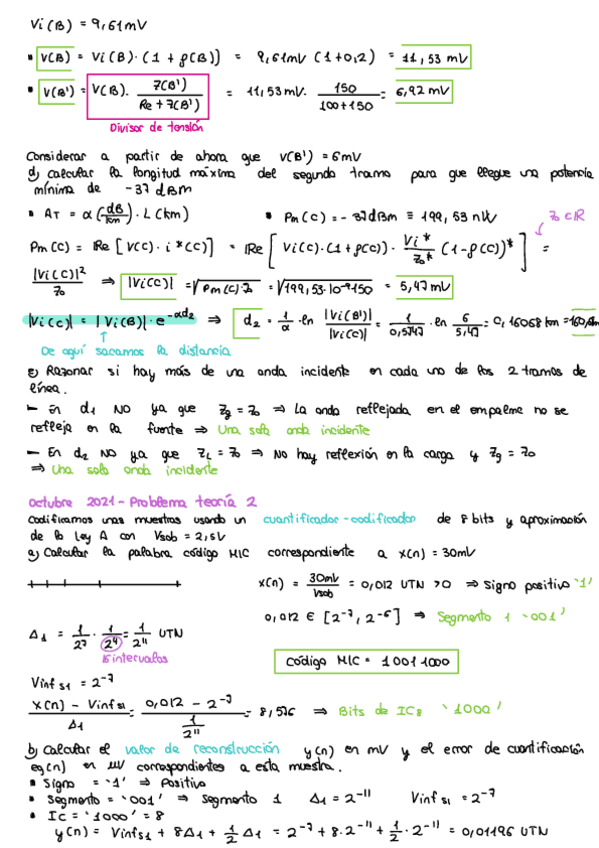 Vi(B) = 9,61mV
• V(B) = Vi(B) · (1 + ρ(B)) = 9,61mV (1+0,2) = 11,53 mV
• V(B') = V(B) · Z(B') / (Re + Z(B')) = 11,53mV · 150 / (100+150) = 6,92 mV
Divisor de tensión
Considerar a partir de ahora que V(B') = 6mV
d) calcular la longitud máxima del segundo tramo para que llegue una potencia
mínima de -37 dBm
• AT = α (dB/km) · L (km) • Pm(C) = -37dBm ≡ 199,53 nW Z0 ∈ ℝ
Pm(C) = Re [ V(C) · i*(C) ] = Re [ Vi(C) · (1+ρ(C)) · Vi*/Z0* (1-ρ(C))* ] =
|Vi(C)|² / Z0 ⇒ |Vi(C)| = √(Pm(C)·Z0) = √(199,53·10⁻⁹·150) = 5,47 mV
|Vi(C)| = |Vi(B)| · e^(-αd2) ⇒ d2 = 1/α · ln |Vi(B')| / |Vi(C)| = 1/0,5747 · ln 6/5,47 = 0,16068 km = 160,6m
De aquí sacamos la distancia
e) Razonar si hay más de una onda incidente en cada uno de los 2 tramos de
línea.
– En d1 NO ya que Zg = Z0 ⇒ La onda reflejada en el empalme no se
refleja en la fuente ⇒ Una sola onda incidente
– En d2 NO ya que ZL = Z0 ⇒ No hay reflexión en la carga y Zg = Z0
⇒ Una sola onda incidente
Octubre 2021 - Problema teoría 2
Codificamos unas muestras usando un cuantificador-codificador de 8 bits y aproximación
de la ley A con Vsob = 2,5V
a) Calcular la palabra código MIC correspondiente a x(n) = 30mV
x(n) = 30mV / Vsob = 0,012 UTN > 0 ⇒ Signo positivo '1'
0,012 ∈ [2⁻⁷, 2⁻⁶] ⇒ Segmento 1 '001'
Δ1 = 1/2⁷ · 1/2⁴ = 1/2¹¹ UTN
16 intervalos
Código MIC = 1001 1000
Vinf S1 = 2⁻⁷
(x(n) - Vinf S1) / Δ1 = (0,012 - 2⁻⁷) / (1/2¹¹) = 8,576 ⇒ Bits de IC8 '1000'
b) Calcular el valor de reconstrucción y(n) en mV y el error de cuantificación
eq(n) en mV correspondientes a esta muestra.
• Signo = '1' ⇒ Positivo
• Segmento = '001' ⇒ Segmento 1 Δ1 = 2⁻¹¹ Vinf S1 = 2⁻⁷
• IC = '1000' = 8
y(n) = Vinf S1 + 8Δ1 + 1/2 Δ1 = 2⁻⁷ + 8·2⁻¹¹ + 1/2 · 2⁻¹¹ = 0,01196 UTN